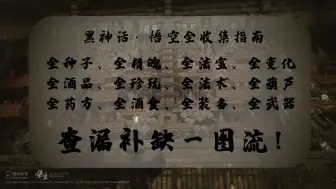 黑神话·悟空全收集指南
全种子、全精魄、全法宝、全变化
全酒品、全珍玩、全法术、全葫芦
全药方、全酒食、全装备、全武器
查漏补缺一图流！